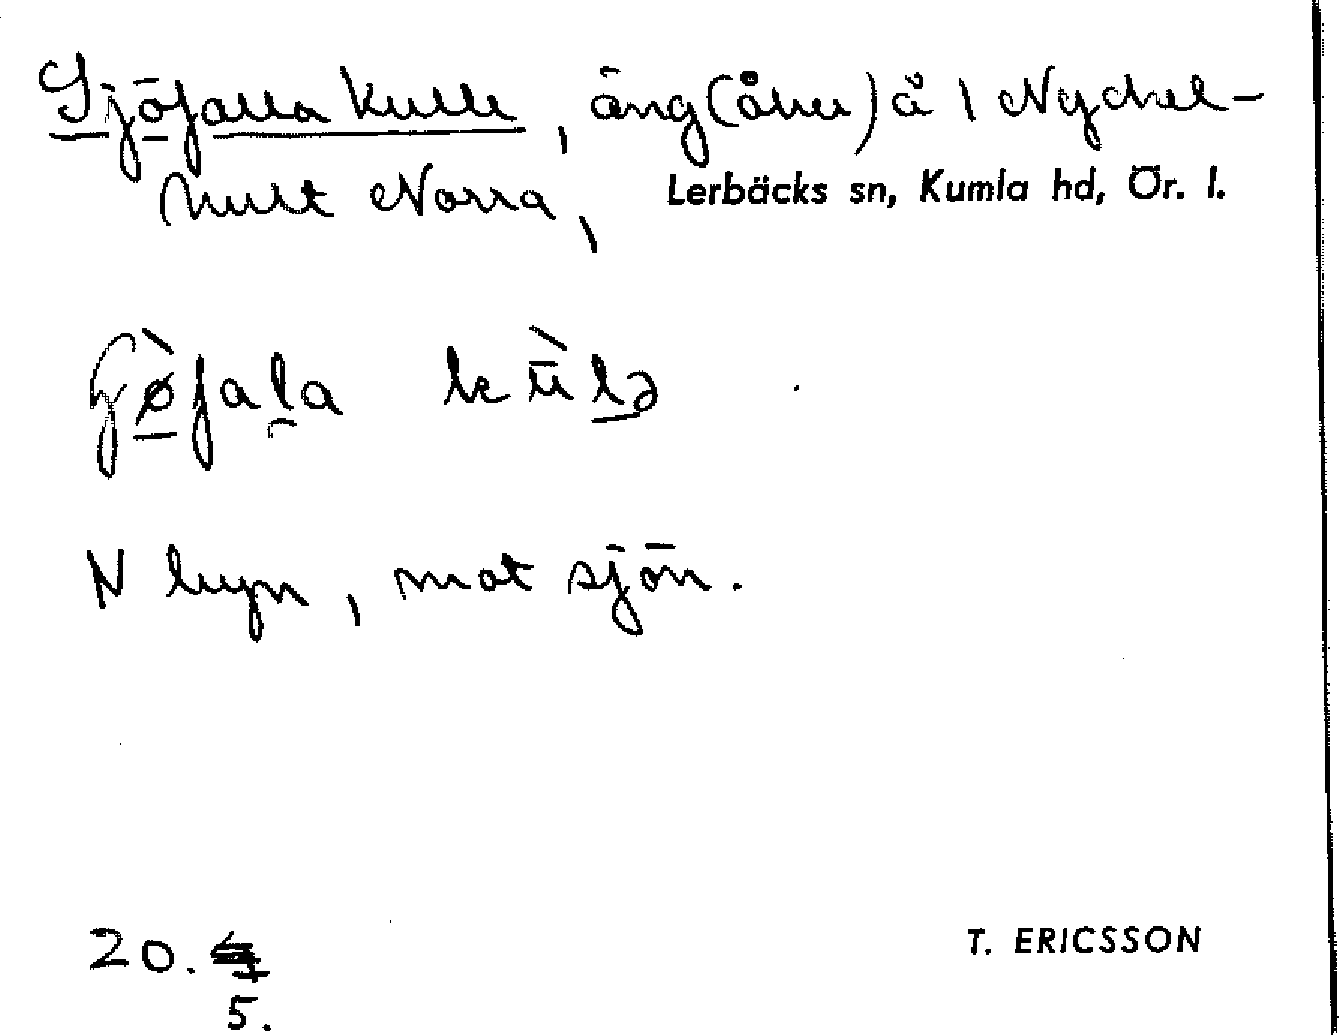 Sjöfalla kulle, äng (åker) å 1 Nyckel-
hult Norra, Lerbäcks sn, Kumla hd, Ör. l.
N byn, mot sjön.
20.
5.
T. ERICSSON